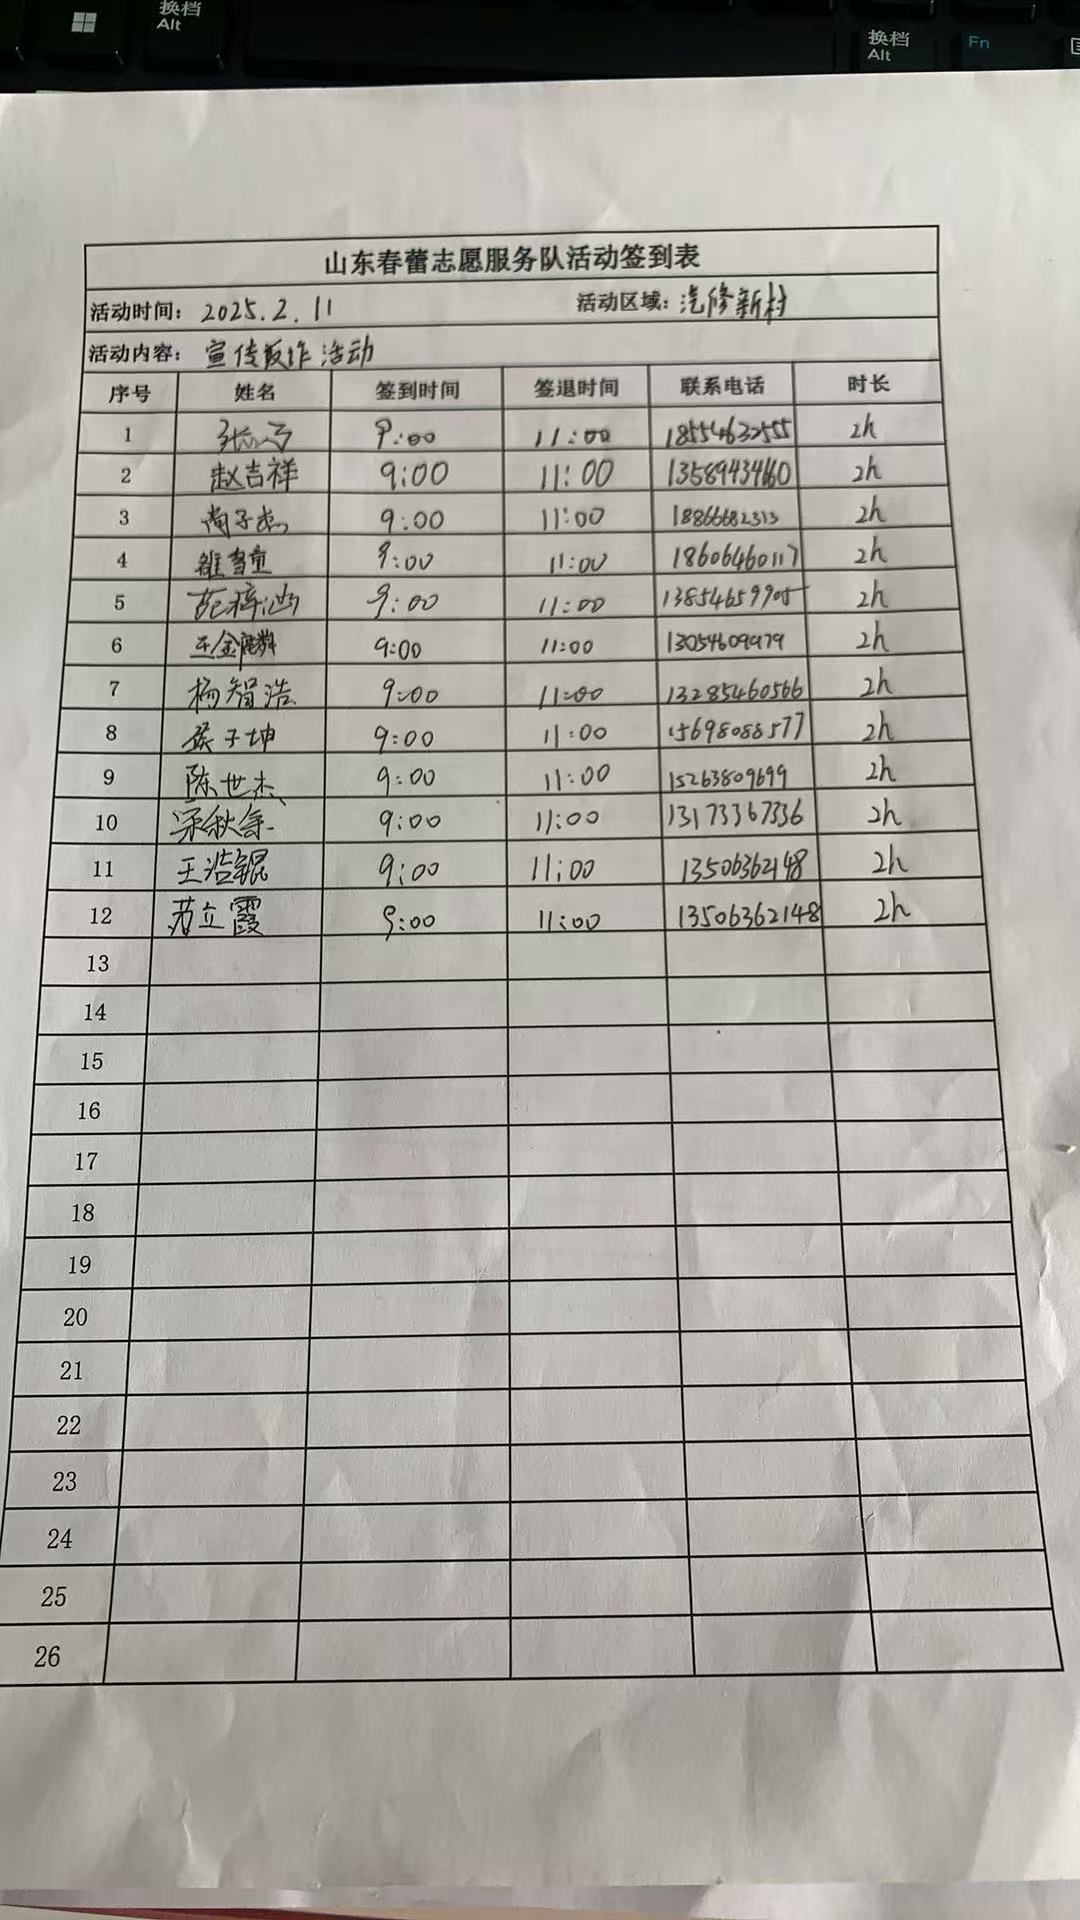 换档
Alt
换档
Alt
Fn
山东春蕾志愿服务队活动签到表
活动时间：2025.2.11 活动区域：汽修新村
活动内容：宣传反诈活动
序号 姓名 签到时间 签退时间 联系电话 时长
1 9:00 11:00 18554632555 2h
2 赵吉祥 9:00 11:00 13589434660 2h
3 尚子杰 9:00 11:00 18866682313 2h
4 9:00 11:00 18606460117 2h
5 9:00 11:00 13854659905 2h
6 王金麟 9:00 11:00 13054609979 2h
7 杨智浩 9:00 11:00 13285460566 2h
8 侯子坤 9:00 11:00 15698088577 2h
9 陈世杰 9:00 11:00 15263809699 2h
10 9:00 11:00 13173367336 2h
11 王浩锟 9:00 11:00 13506362148 2h
12 苏立霞 9:00 11:00 13506362148 2h
13
14
15
16
17
18
19
20
21
22
23
24
25
26